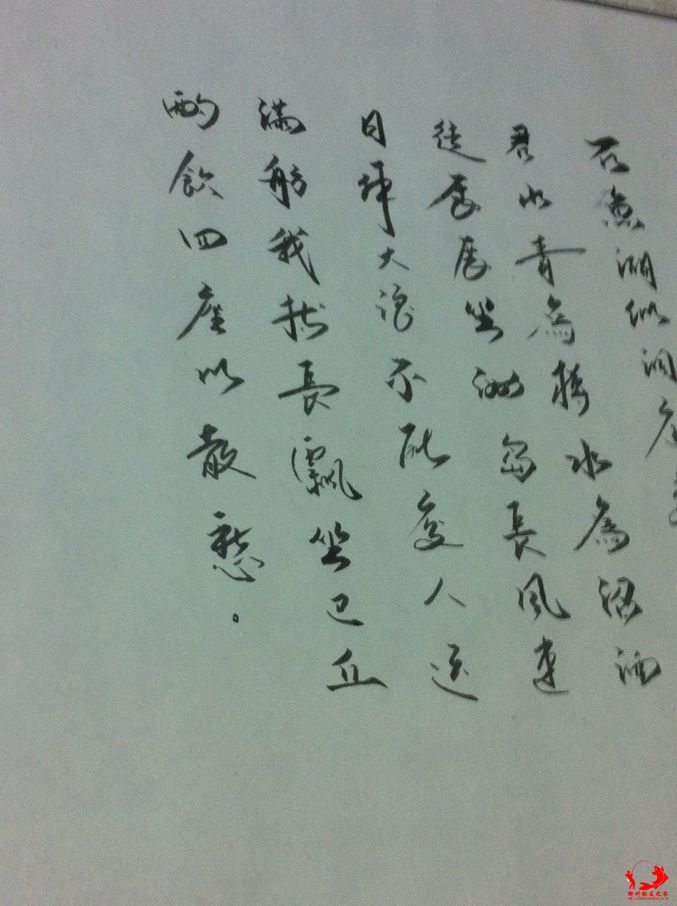 石魚湖似洞庭夏
君山青為樽水為沼酒
徒歷歷坐洲島長風連
日作大浪不能廢人運
滿舫我持長瓢坐巴丘
酌飲四座以散愁。